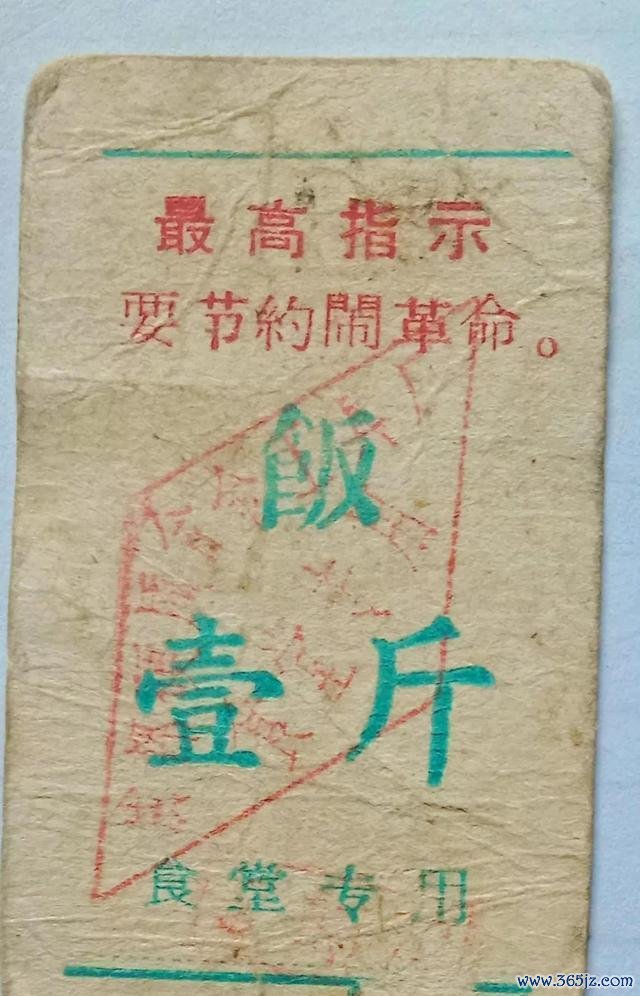 最高指示
要节約鬧革命。
飯
壹斤
食堂专用
www.365jz.com